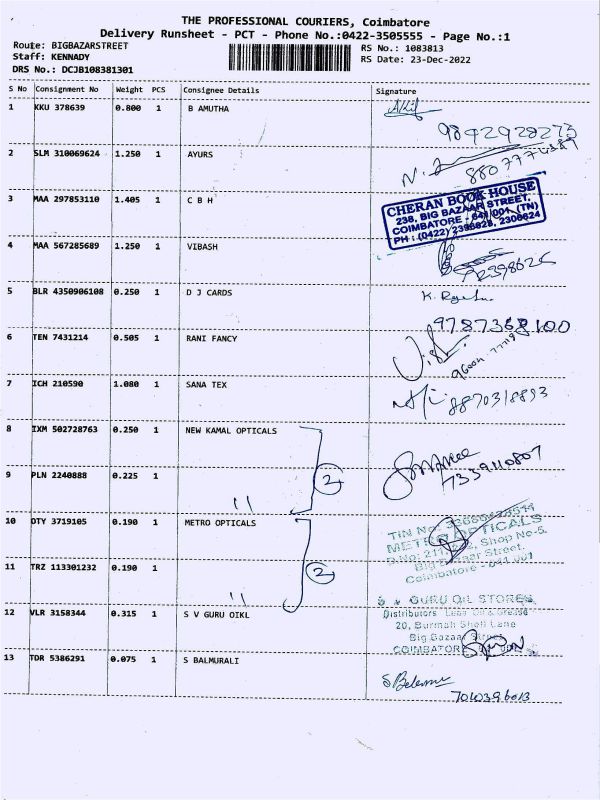 THE PROFESSIONAL COURIERS, Coimbatore
Delivery Runsheet - PCT - Phone No.:0422-3505555 - Page No.:1
Route: BIGBAZARSTREET
RS No.: 1083813
Staff: KENNADY
RS Date: 23-Dec-2022
DRS No.: DCJB108381301
S No Consignment No Weight PCS Consignee Details Signature
1 KKU 378639 0.800 1 B AMUTHA
9842928273
2 SLM 310069624 1.250 1 AYURS
3 MAA 297853110 1.405 1 C B H
CHERAN BOOK HOUSE
238, BIG BAZAAR STREET,
COIMBATORE - 641 001. (TN)
PH : (0422) 2398626, 2306624
4 MAA 567285689 1.250 1 VIBASH
5 BLR 4350906108 0.250 1 D J CARDS
6 TEN 7431214 0.505 1 RANI FANCY
7 ICH 210590 1.080 1 SANA TEX
8870318893
8 IXM 502728763 0.250 1 NEW KAMAL OPTICALS
2
7339110807
9 PLN 2240888 0.225 1 "
10 OTY 3719105 0.190 1 METRO OPTICALS
METRO OPTICALS
Shop No-5,
Big Bazaar Street,
Coimbatore - 641 001
11 TRZ 113301232 0.190 1 "
2
12 VLR 3158344 0.315 1 S V GURU OIKL
GURU OIL STORES
Distributors
20, Burmah Shell Lane
Big Bazaar Street
COIMBATORE
13 TDR 5386291 0.075 1 S BALMURALI
7010396013